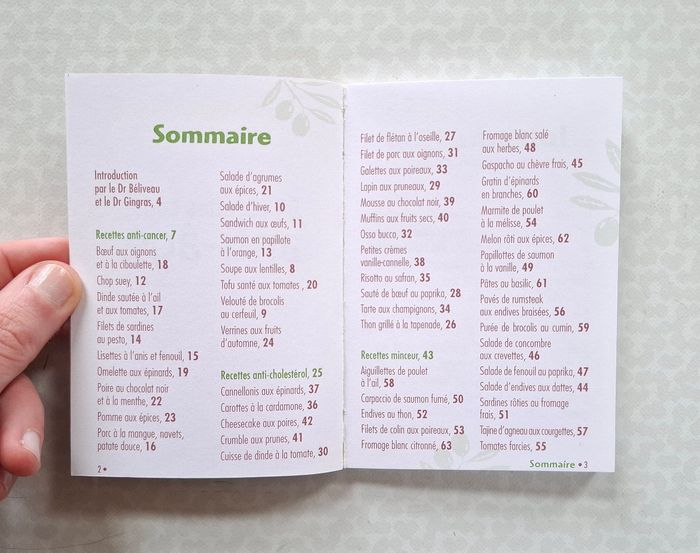 Sommaire
Introduction
par le Dr Béliveau
et le Dr Gingras, 4
Recettes anti-cancer, 7
Bœuf aux oignons
et à la ciboulette, 18
Chop suey, 12
Dinde sautée à l'ail
et aux tomates, 17
Filets de sardines
au pesto, 14
Lisettes à l'anis et fenouil, 15
Omelette aux épinards, 19
Poire au chocolat noir
et à la menthe, 22
Pomme aux épices, 23
Porc à la mangue, navets,
patate douce, 16
Salade d'agrumes
aux épices, 21
Salade d'hiver, 10
Sandwich aux œufs, 11
Saumon en papillote
à l'orange, 13
Soupe aux lentilles, 8
Tofu santé aux tomates , 20
Velouté de brocolis
au cerfeuil, 9
Verrines aux fruits
d'automne, 24
Recettes anti-cholestérol, 25
Cannellonis aux épinards, 37
Carottes à la cardamome, 36
Cheesecake aux poires, 42
Crumble aux prunes, 41
Cuisse de dinde à la tomate, 30
2 •
Filet de flétan à l'oseille, 27
Filet de porc aux oignons, 31
Galettes aux poireaux, 33
Lapin aux pruneaux, 29
Mousse au chocolat noir, 39
Muffins aux fruits secs, 40
Osso bucco, 32
Petites crèmes
vanille-cannelle, 38
Risotto au safran, 35
Sauté de bœuf au paprika, 28
Tarte aux champignons, 34
Thon grillé à la tapenade, 26
Recettes minceur, 43
Aiguillettes de poulet
à l'ail, 58
Carpaccio de saumon fumé, 50
Endives au thon, 52
Filets de colin aux poireaux, 53
Fromage blanc citronné, 63
Fromage blanc salé
aux herbes, 48
Gaspacho au chèvre frais, 45
Gratin d'épinards
en branches, 60
Marmite de poulet
à la mélisse, 54
Melon rôti aux épices, 62
Papillottes de saumon
à la vanille, 49
Pâtes au basilic, 61
Pavés de rumsteak
aux endives braisées, 56
Purée de brocolis au cumin, 59
Salade de concombre
aux crevettes, 46
Salade de fenouil au paprika, 47
Salade d'endives aux dattes, 44
Sardines rôties au fromage
frais, 51
Tajine d'agneau aux courgettes, 57
Tomates farcies, 55
Sommaire • 3